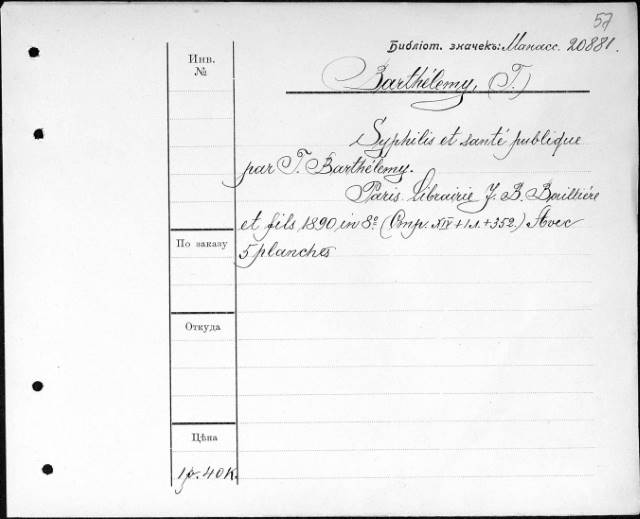 57
Библіот. значекъ: Манасс. 20881.
Инв.
№
Barthélemy, (T.)
Syphilis et santé publique
par T. Barthélemy.
Paris Librairie J. B. Baillière
et fils, 1890, in 8º. (Стр. XIV + 1 л. + 352.) Avec
По заказу
5 planches
Откуда
Цѣна
1 р. 40 к.